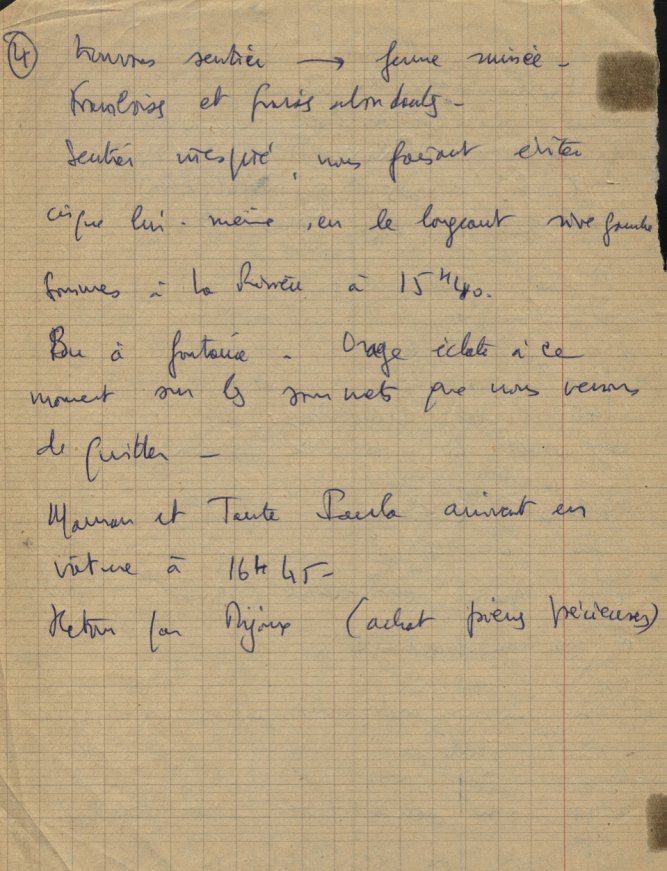 ④ trouvons sentier → ferme ruinée -
Framboises et fraises abondantes -
Sentier inespéré, nous faisant éviter
cirque lui-même, en le longeant rive gauche
Sommes à la Rivière à 15H40.
Bu à fontaine - Orage éclate à ce
moment sur les sommets que nous venons
de quitter -
Maman et Tante Paula arrivent en
voiture à 16H45 -
Retour par Mijoux (achat pierres précieuses)